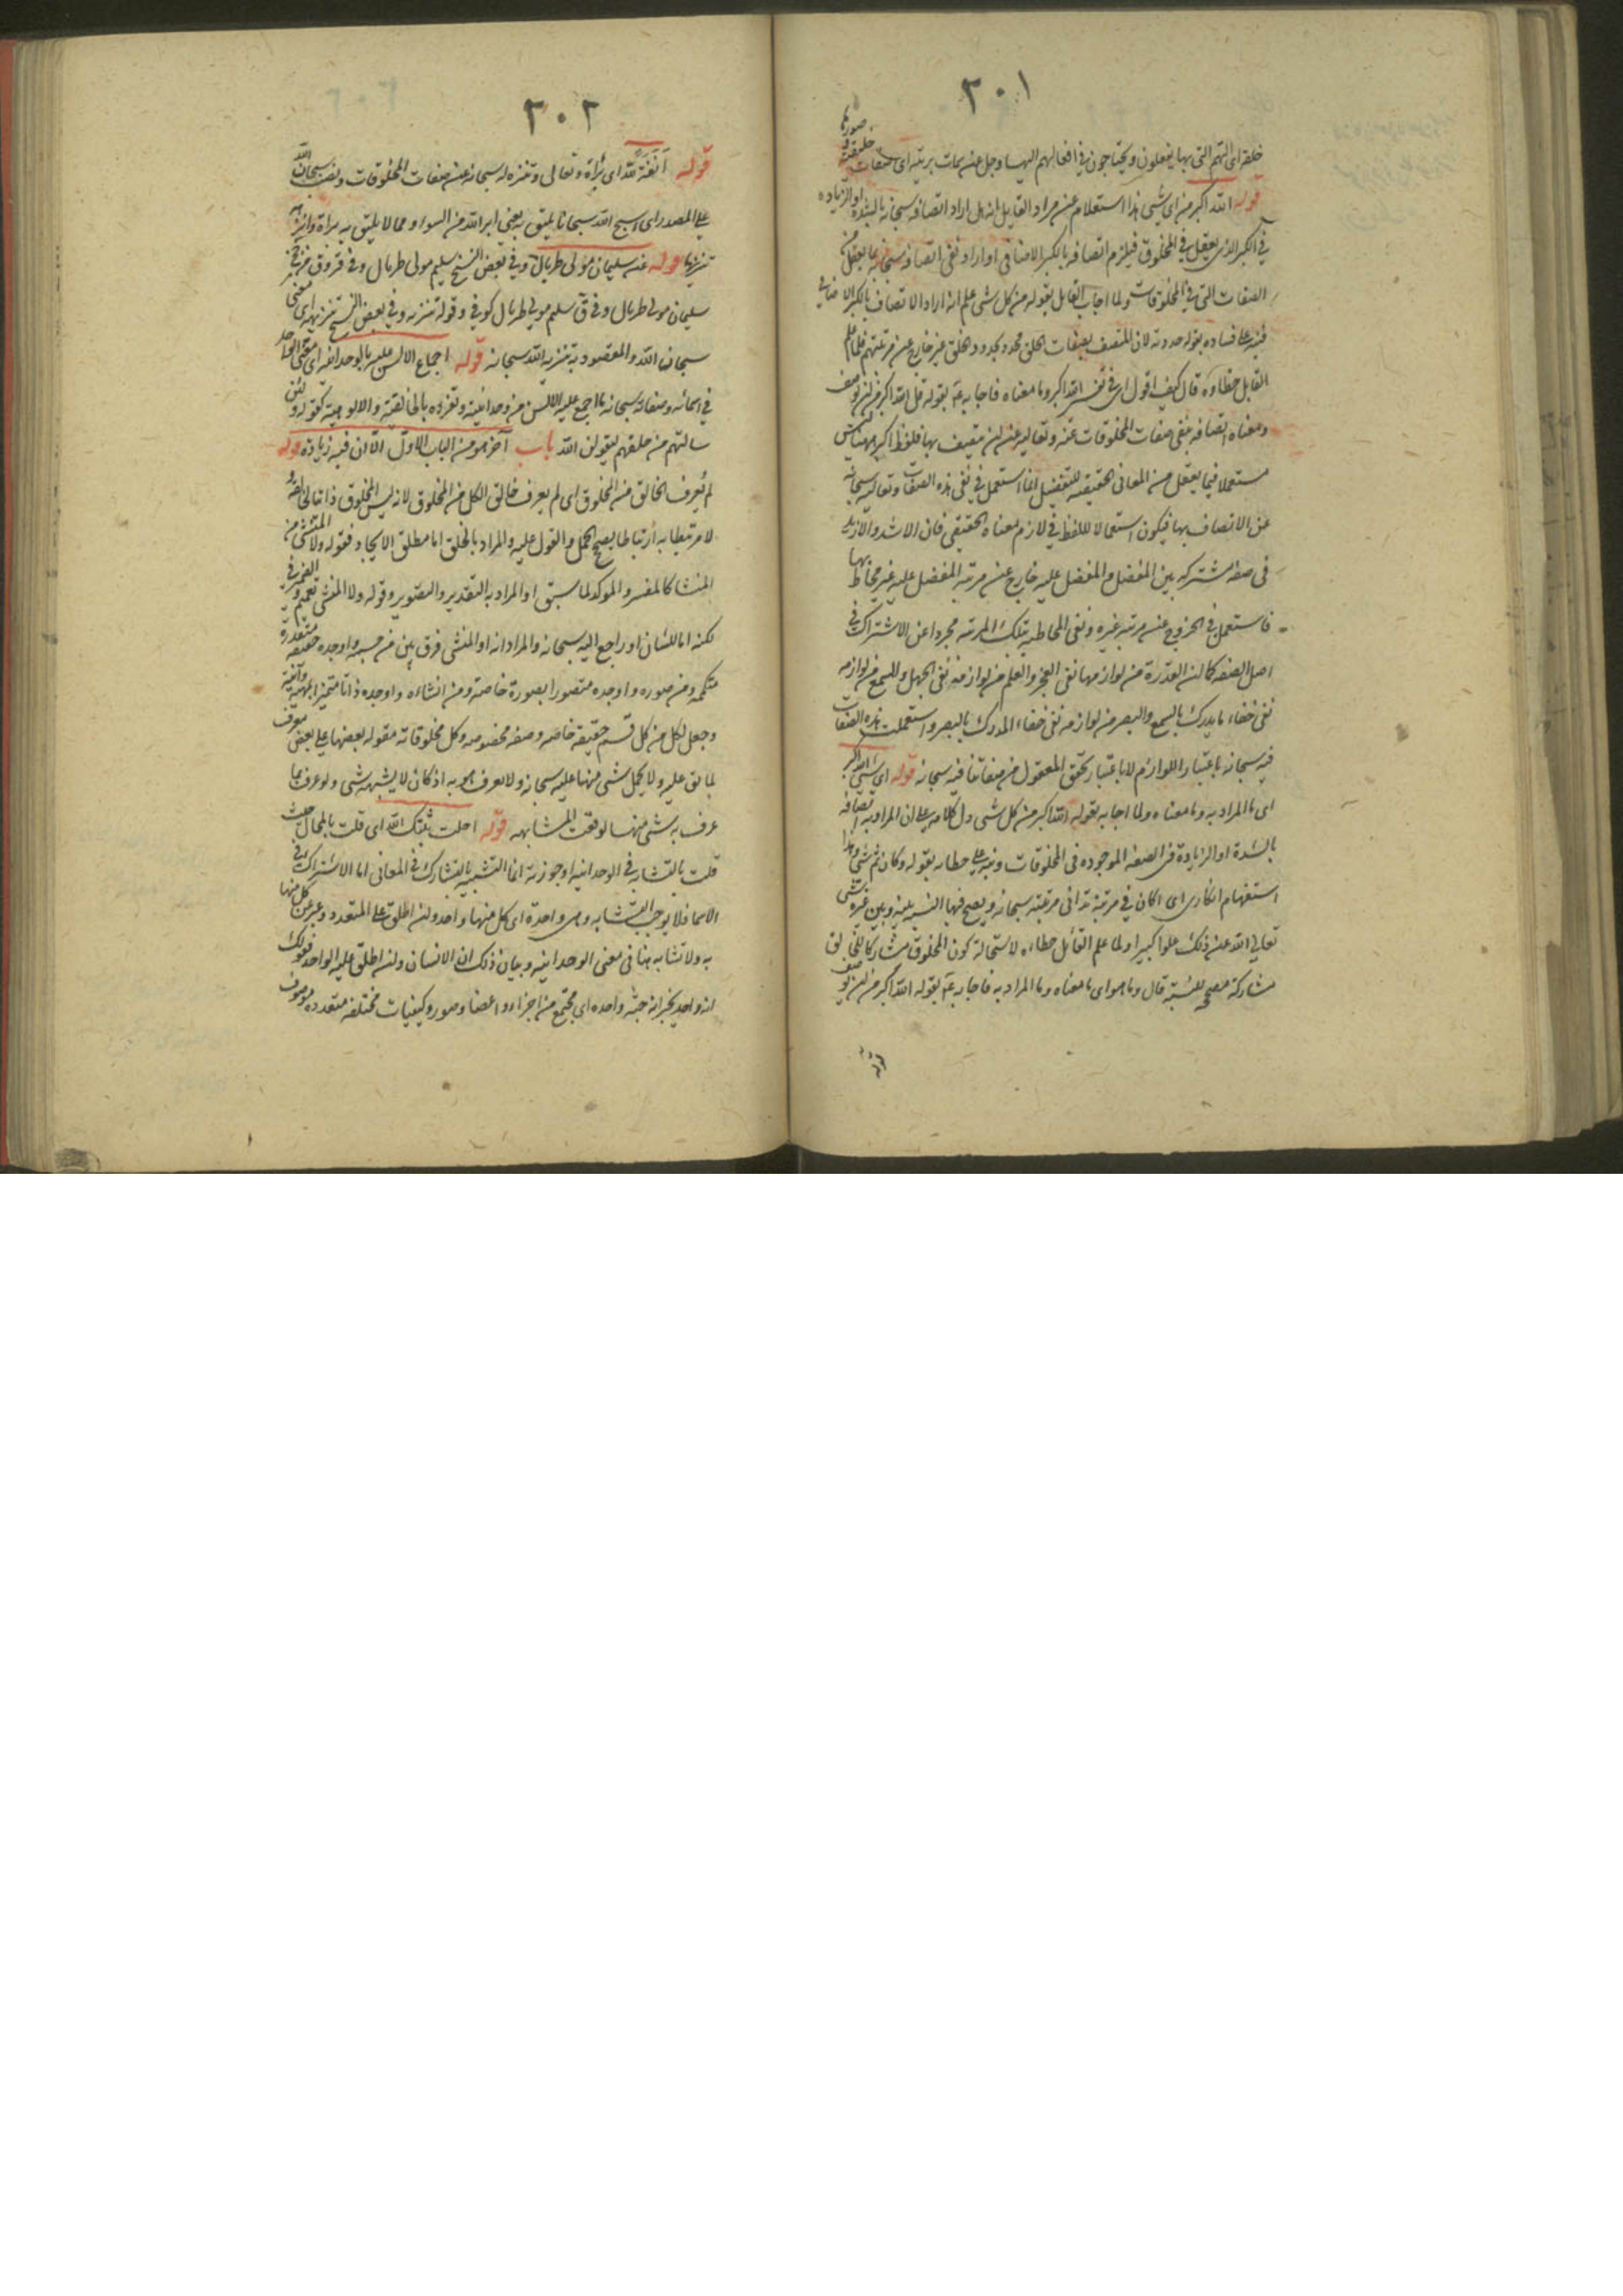 ٣٠١
خلقه اى آلتهم التى بها يفعلون ويحتاجون فى افعالهم اليها وجل عن سمات بريته اى صفات خليقته و صورها
قوله الله اكبر من اى شىء هذا استعلام عن مراد القايل انه هل اراد اتصافه سبحانه بالشدة او الزياده
فى الكبر الذى يعقل فى المخلوق فيلزم اتصافه بالكبر الاضافى او اراد نفى اتصافه سبحانه بما يعقل من
الصفات التى فى المخلوقات ولما اجاب القايل بقوله من كل شىء علم انه اراد الاتصاف بالكبر الاضافى
فنبه على فساده بقوله حددته لان المتصف بصفات الخلق محدود بحدود الخلق غير خارج عن مرتبتهم فلما علم
القايل خطاؤه قال كيف اقول اى فى تفسير الله اكبر وما معناه فاجابه عم بقوله قل الله اكبر من ان يوصف
ومعناه اتصافه بنفى صفات المخلوقات عنه وتعاليه عن ان يتصف بها فلفظ اكبر ههنا ليس
مستعملا فيما يعقل من المعانى الحقيقيه للتفضيل انما استعمل فى نفى هذه الصفات وتعاليه سبحانه
عن الاتصاف بها فيكون استعمالا للفظ فى لازم معناه الحقيقى فان الاشد والازيد
فى صفه مشتركه بين المفضل والمفضل عليه خارج عن مرتبة المفضل عليه غير محاط بها
فاستعمل فى الخروج عن مرتبه غيره ونفى المحاطيه بتلك المرتبه مجردا عن الاشتراك فى
اصل الصفه كما ان القدرة من لوازمها نفى العجز والعلم من لوازمه نفى الجهل والسمع من لوازمه
نفى خفاء ما يدرك بالسمع والبصر من لوازمه نفى خفاء المدرك بالبصر واستعملت هذه الصفات
فيه سبحانه باعتبار اللوازم لا باعتبار تحقق المعقول من صفاتنا فيه سبحانه قوله اى شىء الله اكبر
اى ما المراد به وما معناه ولما اجابه بقوله الله اكبر من كل شىء دل كلامه على ان المراد به اتصافه
بالشدة او الزيادة فى الصفه الموجوده فى المخلوقات ونبه على خطاءه بقوله وكان ثم شىء وهذا
استفهام انكارى اى اكان فى مرتبة تدانى مرتبته سبحانه ويصح فيها النسبة بينه وبين غيره شىء
تعالى الله عن ذلك علوا كبيرا ولما علم القائل خطاءه لاستحالة كون المخلوق مشاركا للخالق
مشاركة مصححه للنسبة قال وما هو اى ما معناه وما المراد به فاجابه عم بقوله الله اكبر من ان يوصف
قوله
٣٠٢
قوله اَنَفَة لله اى برأة وتعالى وتنزه له سبحانه عن صفات المخلوقات ونصب سبحان الله
على المصدر اى اسبح الله سبحانا يليق به يعنى ابرء الله من السوء او مما لا يليق به براءة وانزهه
تنزيها قوله عن سليمان مولى طربال وفى بعض النسخ سليم مولى طربال وفى ق وق من رجخ
سليمان مولى طربال وفى ق سليم مولى طربال كوفى وقوله تنزيه وفى بعض النسخ تنزيهه اى معنى
سبحان الله والمقصود به تنزيه الله سبحانه قوله اجماع الالسن عليه بالوحدانيه اى معنى الواحد
فى اسمائه وصفاته سبحانه ما اجمع عليه الالسن من وحدانيته وتفرده بالخالقية والالوهيه كقوله ولئن
سالتهم من خلقهم ليقولن الله باب آخر وهو من الباب الاول الا ان فيه زيادة قوله
لم يُعرف الخالق من المخلوق اى لم يعرف خالق الكل من المخلوق لانه ليس المخلوق ذاتا
لا مرتبطا به ارتباطا يصح الحمل والقول عليه والمراد بالخلق اما مطلق الايجاد فقوله ولا المنشىء من
المنشا كالمفسر والموكد لما سبق او المراد به التقدير والتصوير وقوله ولا المنشى تعميم والضمير فى
لكنه اما للشان او راجع اليه سبحانه والمراد انه او المنشى فرق بين من جسمه واوجده حقيقه متقدرة
متكممه ومن صوره واوجده متصورا بصورة خاصة ومن انشاءه واوجده ذاتا متميزا بمهيه وانية
وجعل لكل من كل قسم حقيقة خاصه وصفه مخصوصه وكل مخلوقاته مقوله بعضها على بعض
عليه ولا يحمل شىء منها عليه سبحانه ولا يعرف هو به اذ كان لا يشبهه شىء ولو عرف بما
عرف به شىء منها لوقعت المشابهه قوله احلت ثبتك الله اى قلت بالمحال حيث
قلت بالتشابه فى الوحدانيه او جوزته انما التشبيه بالتشارك فى المعانى اما الاشتراك فى
الاسما فلا يوجب التشابه وهى واحدة اى كل منها واحد وان اطلق على المتعدد وعبر عن كل منها
به ولا تشابه هنا فى معنى الوحدانيه وبيان ذلك ان الانسان وان اطلق عليه الواحد فقولك
انه واحد يخبر انه جثة واحده اى مجتمع من اجزاء واعضا وصور وكيفيات مختلفه متعدده موصوف